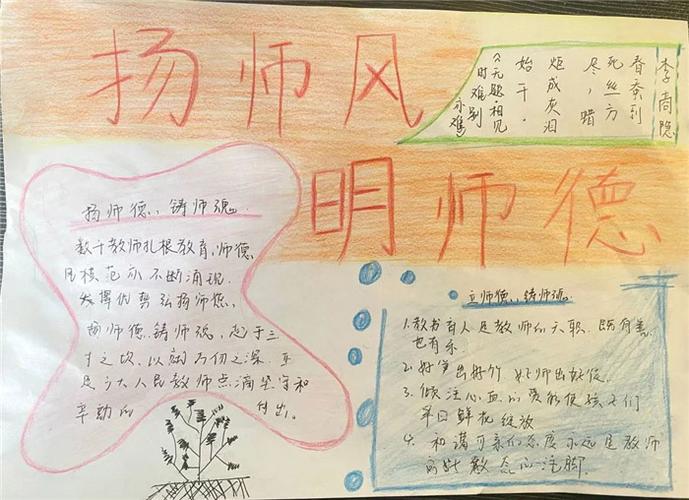 扬师风
明师德
李商隐
春蚕到
死丝方
尽,蜡
炬成灰泪
始干.
《无题·相见
时难别
亦难》
扬师德、铸师魂
数十教师扎根教育,师德
风模范 不断涌现
发挥优势弘扬师德,
扬师德铸师魂,起于三
寸之坎,以就万仞之深,正
是广大人民教师点滴坚守和
辛勤的 付出。
立师德、铸师魂。
1.教书育人是教师的天职,既有善
也有乐.
2.好笋出好竹 好师出好徒
3.倾注心血的爱能使孩子们
早日鲜花绽放
4.和谐可亲的态度永远是教师
教态的注脚.